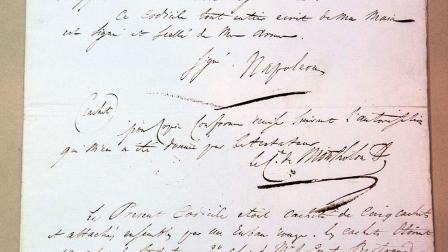 Ce Codicile tout entier ecrit de Ma Main
est Signé et Scellé de Mes armes.
Signé Napoleon
Cachet
pour Copie Conforme suivant l'autorisation
qui m'en a été donnée par le testateur
le Ct. de Montholon
Le Present Codicile etoit cacheté de Cinq cachets
et attachés ensemble par un Ruban rouge. les cachets étoient